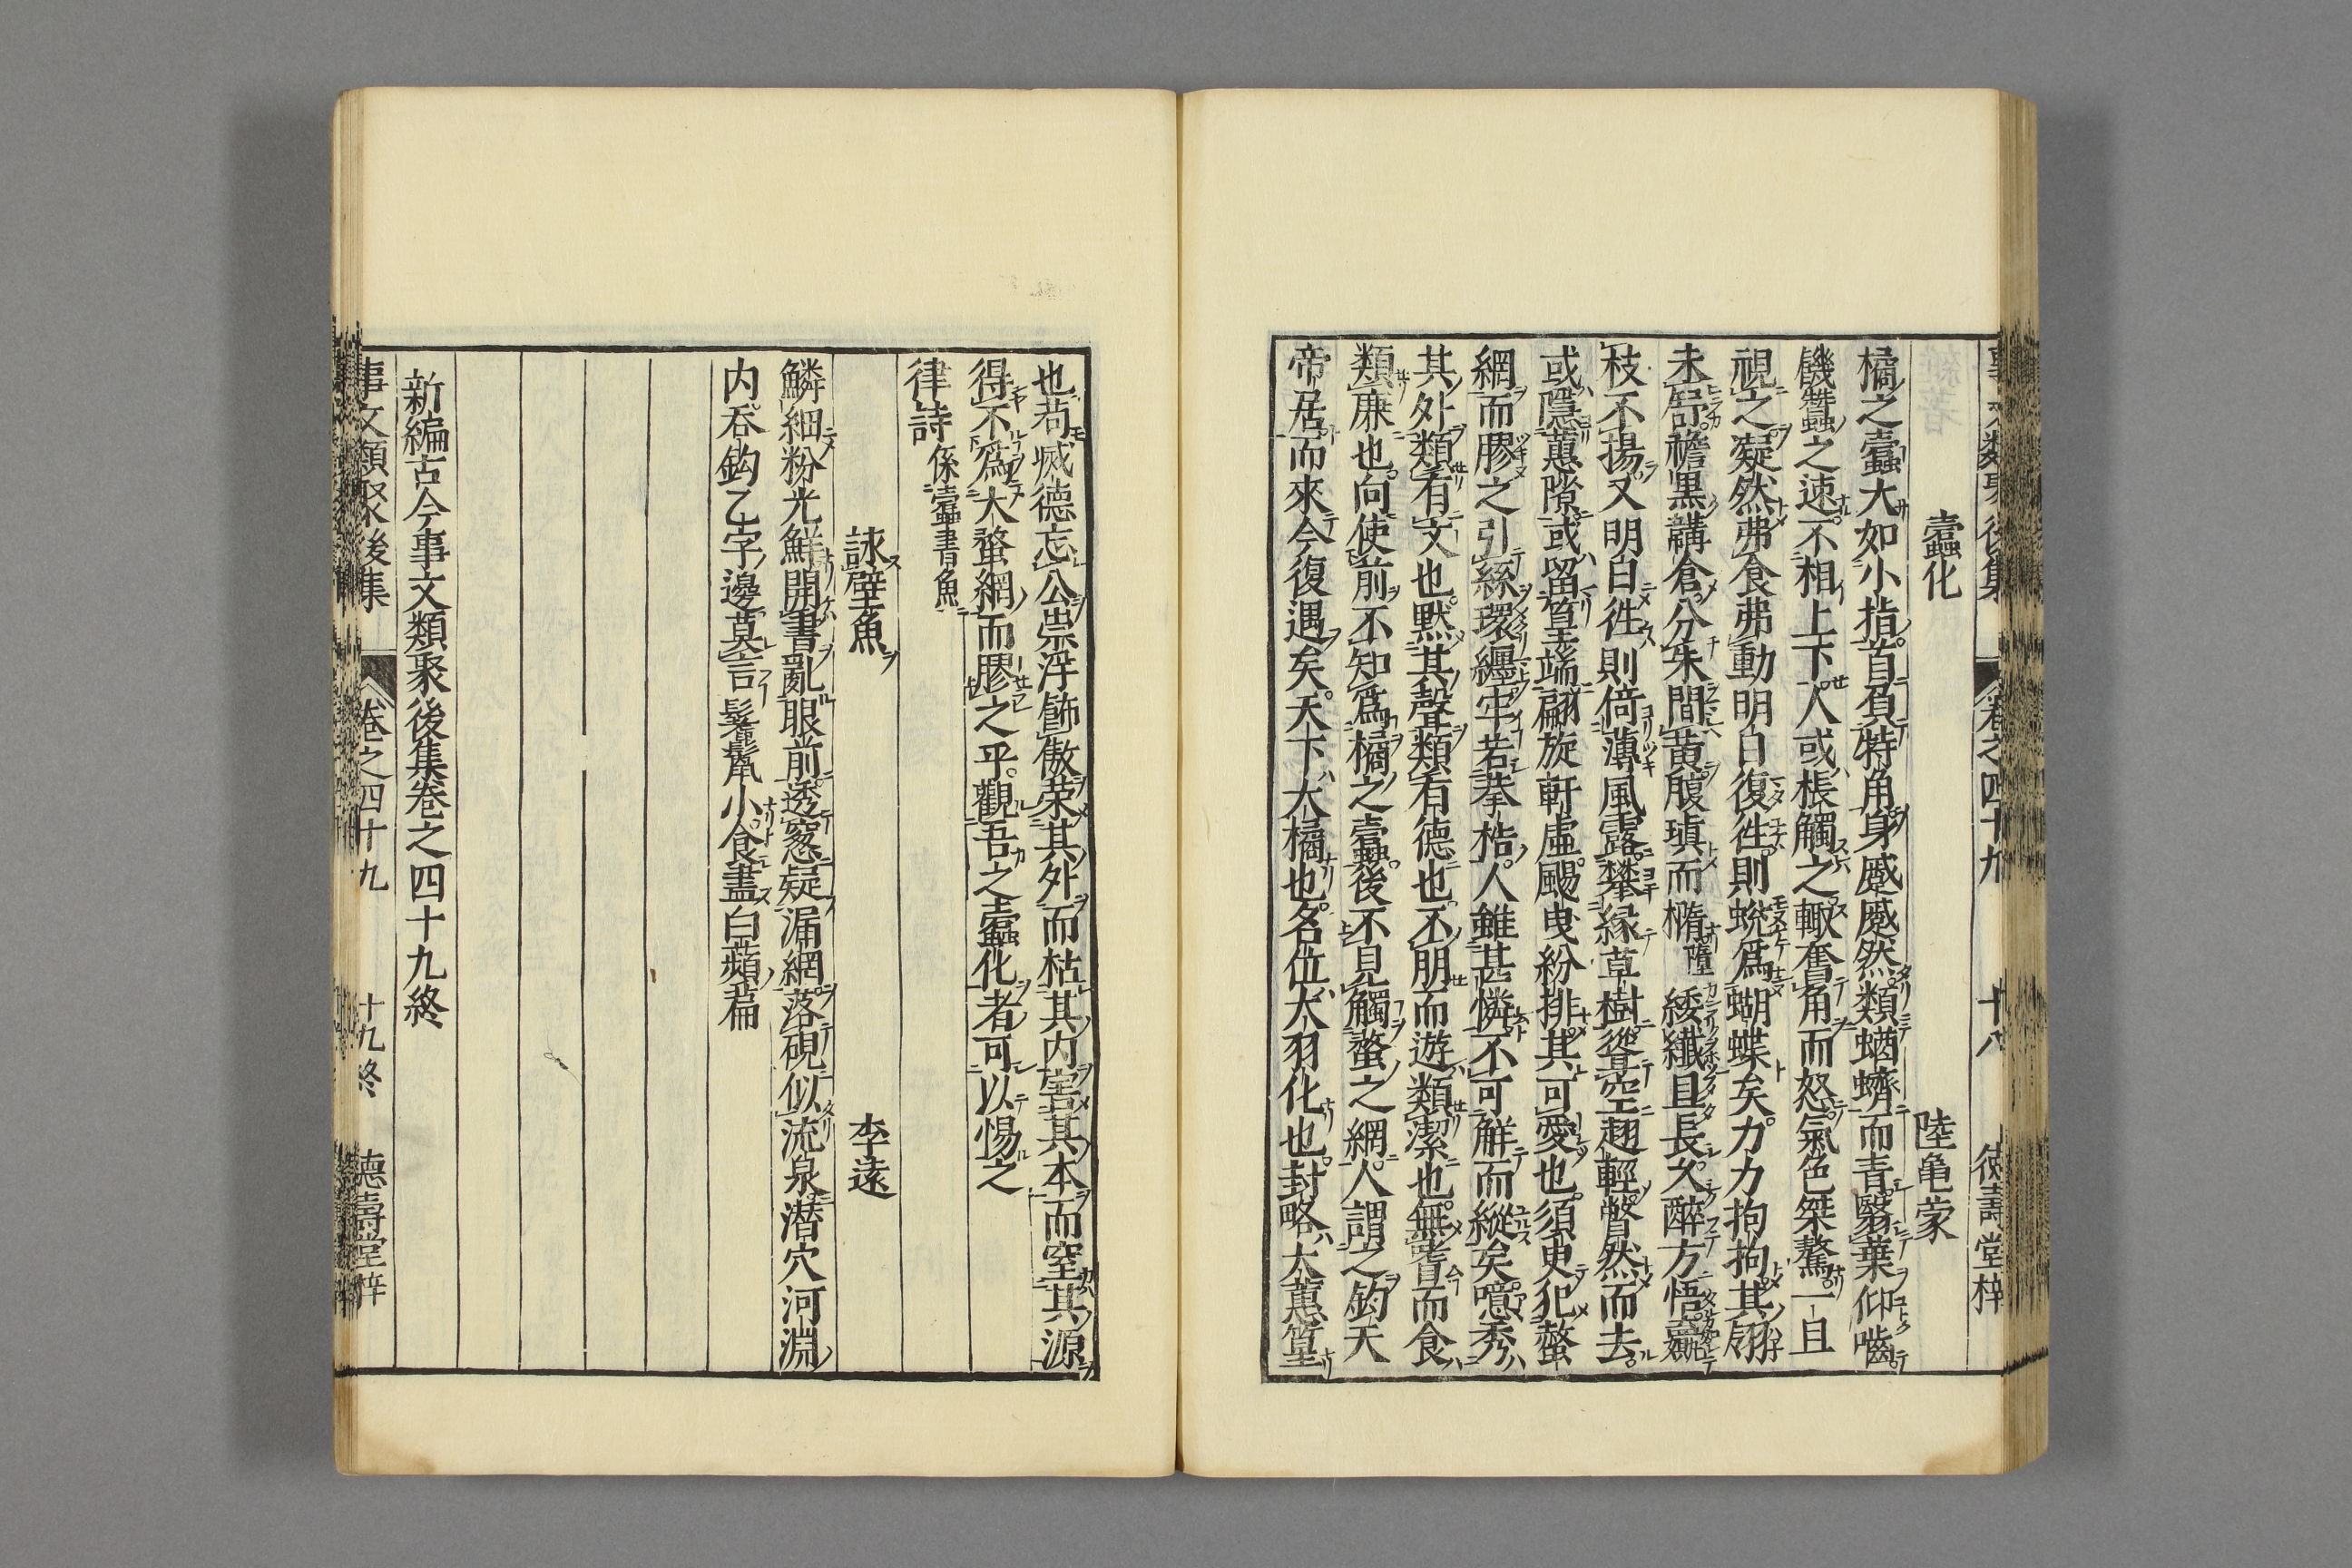 事文類聚後集 卷之四十九 十八 德壽堂梓
蠹化 陸亀蒙
橘之蠹大如小指首負特角身蹙蹙然類蝤蠐而青翳葉仰嚙
饑蠶之速不相上下人或棖觸之輙奮角而怒氣色桀驁一旦
視之凝然弗食弗動明日復徃則蛻爲蝴蝶矣力力拘拘其翎
未舒襜黑韝倉分朱間黄腹瑱而橢墮緌纖且長久醉方悟羸
枝不揚又明日徃則倚薄風露攀縁草樹聳空翅輕瞥然而去
或隱蕙隙或留篁端翩旋軒虛颺曳紛排其可愛也須臾犯蝥
網而膠之引絲環纒牢若拲梏人雖甚憐不可觧而縱矣噫秀
其外類有文也默其聲類有德也不朋而遊類潔也無嗜而食
類廉也向使前不知爲橘之蠹後不見觸蝥之網人謂之鈞天
帝居而來今復遇矣天下大橘也名位大羽化也封略大蕙篁
也苟滅德忘公崇浮飾傲荣其外而枯其内害其本而窒其源
得不爲大蝥網而膠之乎觀吾之蠹化者可以惕之
律詩 係蠹書魚
詠壁魚 李遠
鱗細粉光鮮開書亂眼前透窓疑漏網落硯似流泉潜穴河淵
内吞鈎乙字邊莫言鬐鬣小食盡白蘋篇
新編古今事文類聚後集卷之四十九終
事文類聚後集 卷之四十九 十九終 德壽堂梓